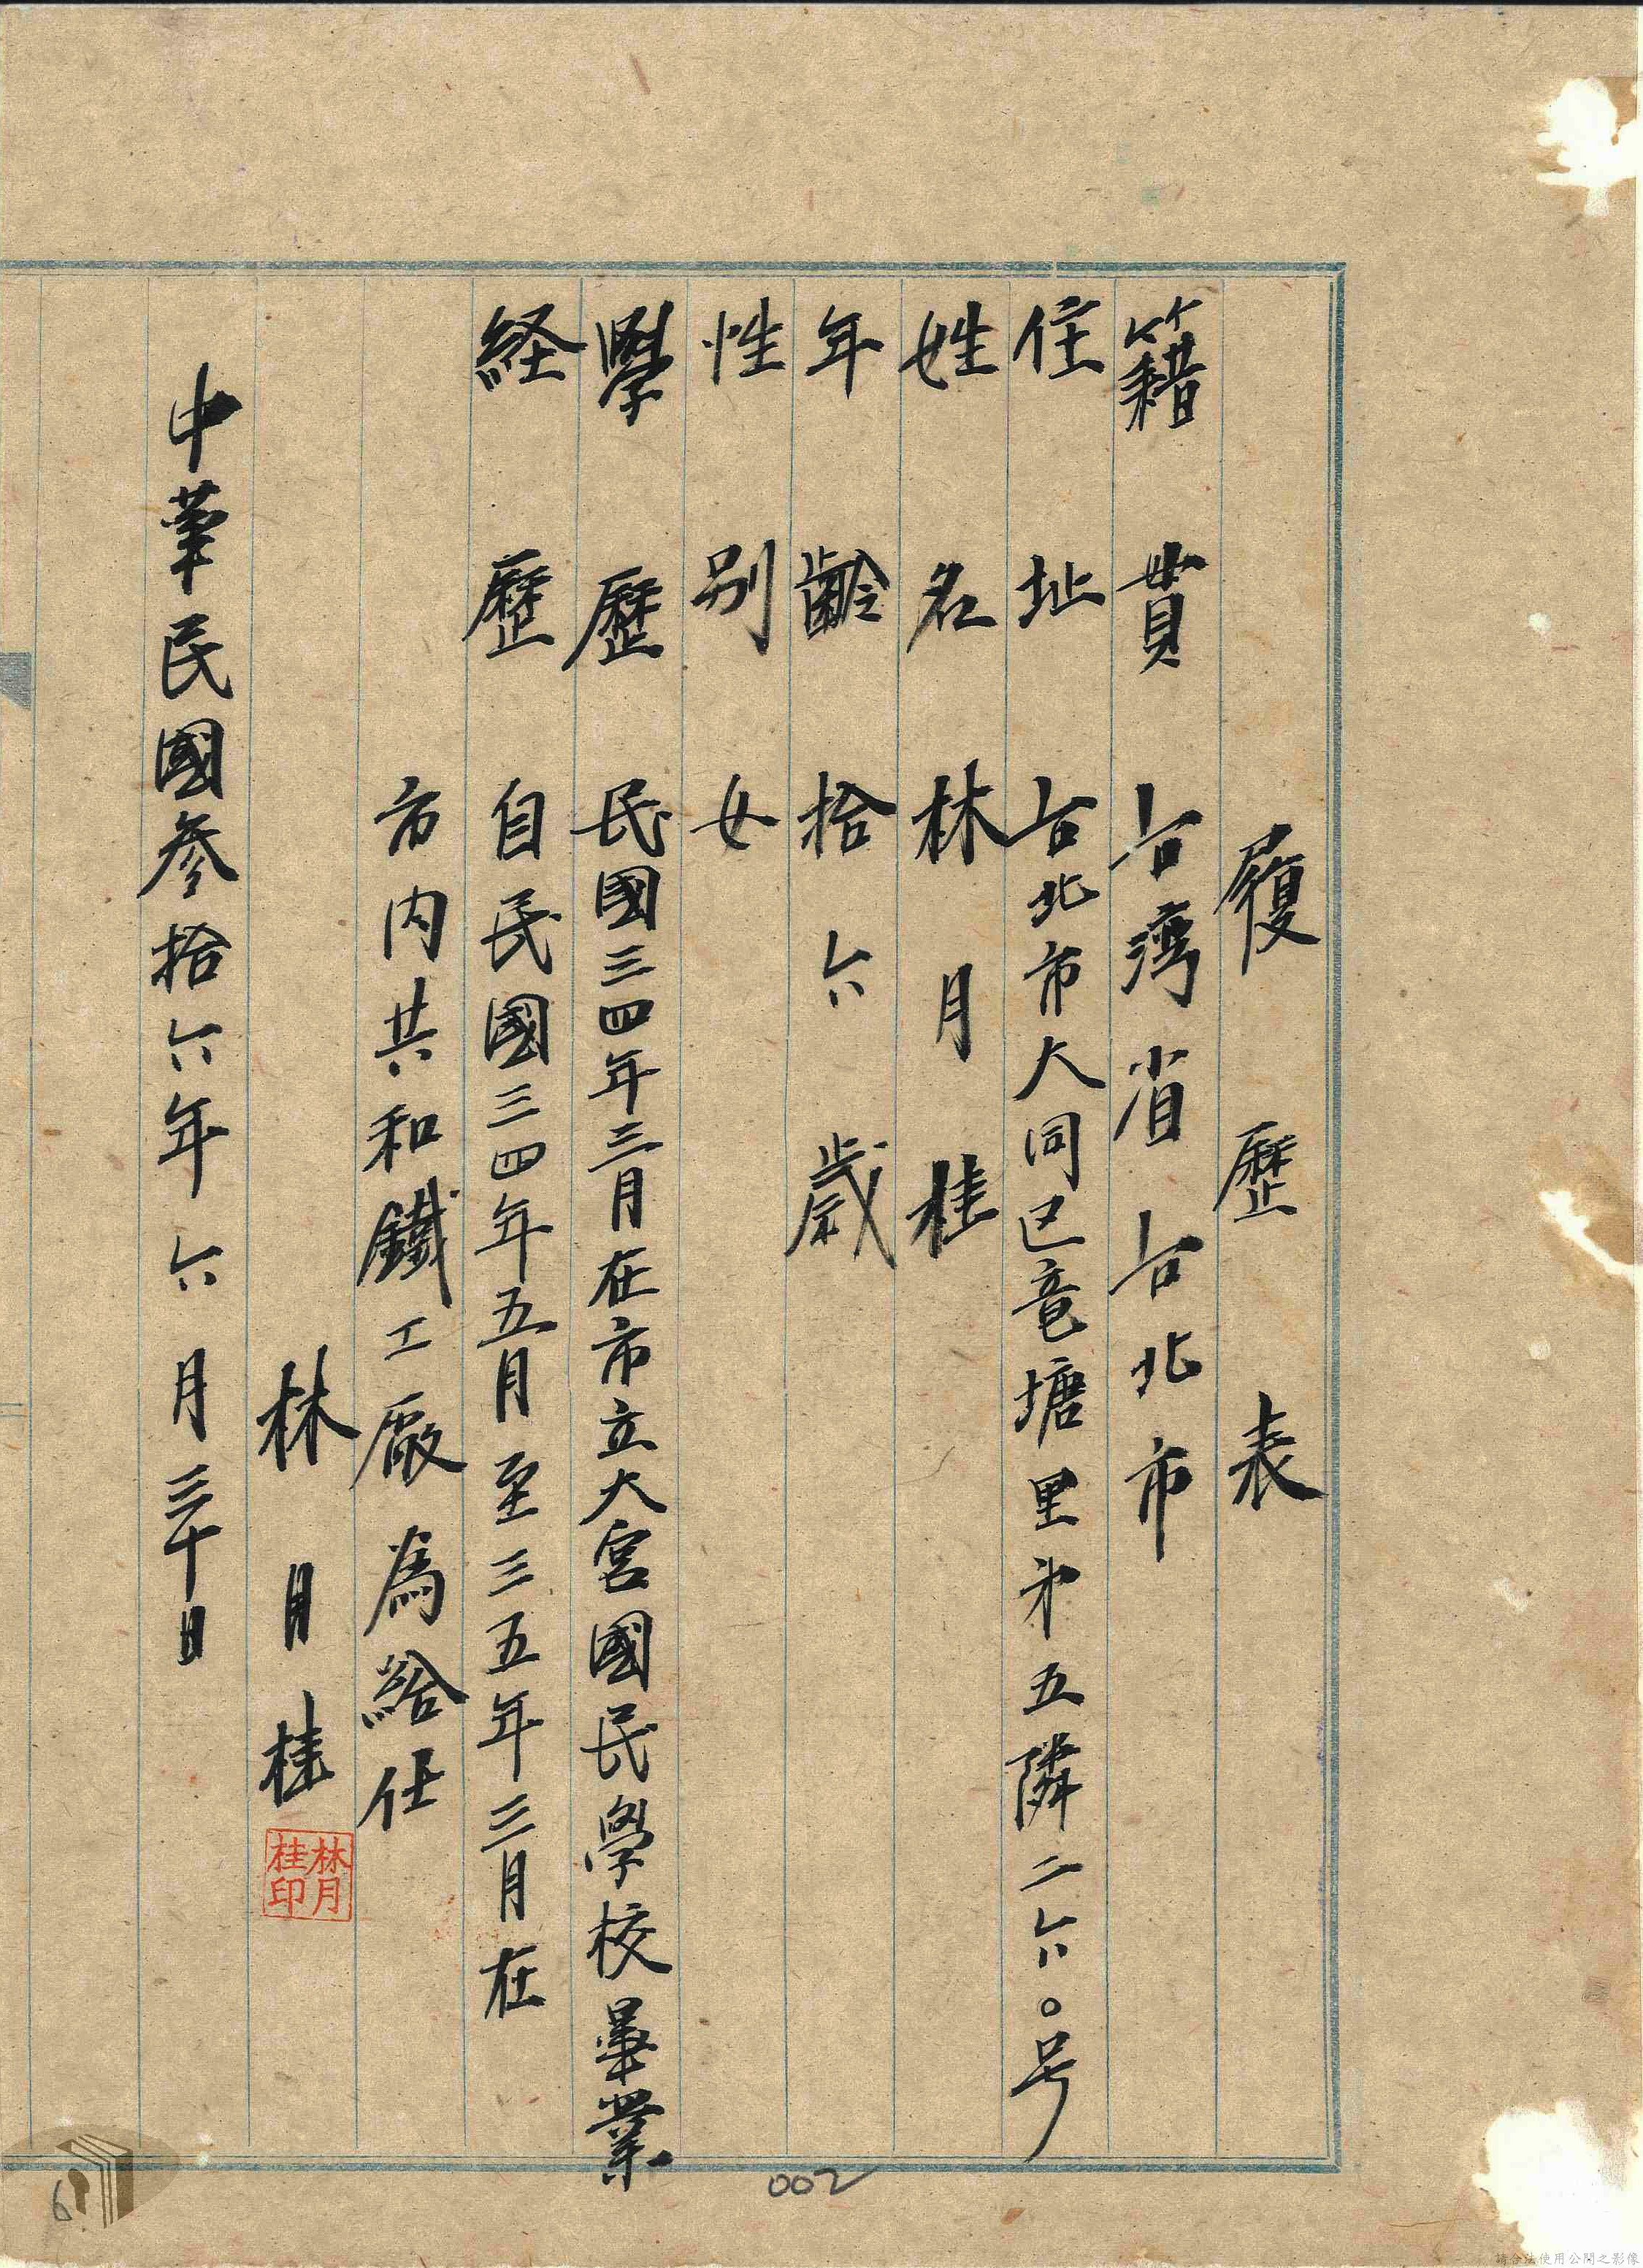 履歷表
籍貫 台湾省台北市
住址 台北市大同区竜塘里第五隣二六〇号
姓名 林月桂
年齡 拾六歲
性別 女
學歷 民國三四年三月在市立大宮國民學校畢業
経歷 自民國三四年五月至三五年三月在
市内共和鐵工廠為給仕
林月桂
林月桂印
中華民國參拾六年六月三十日
002
6
請合法使用公開之影像